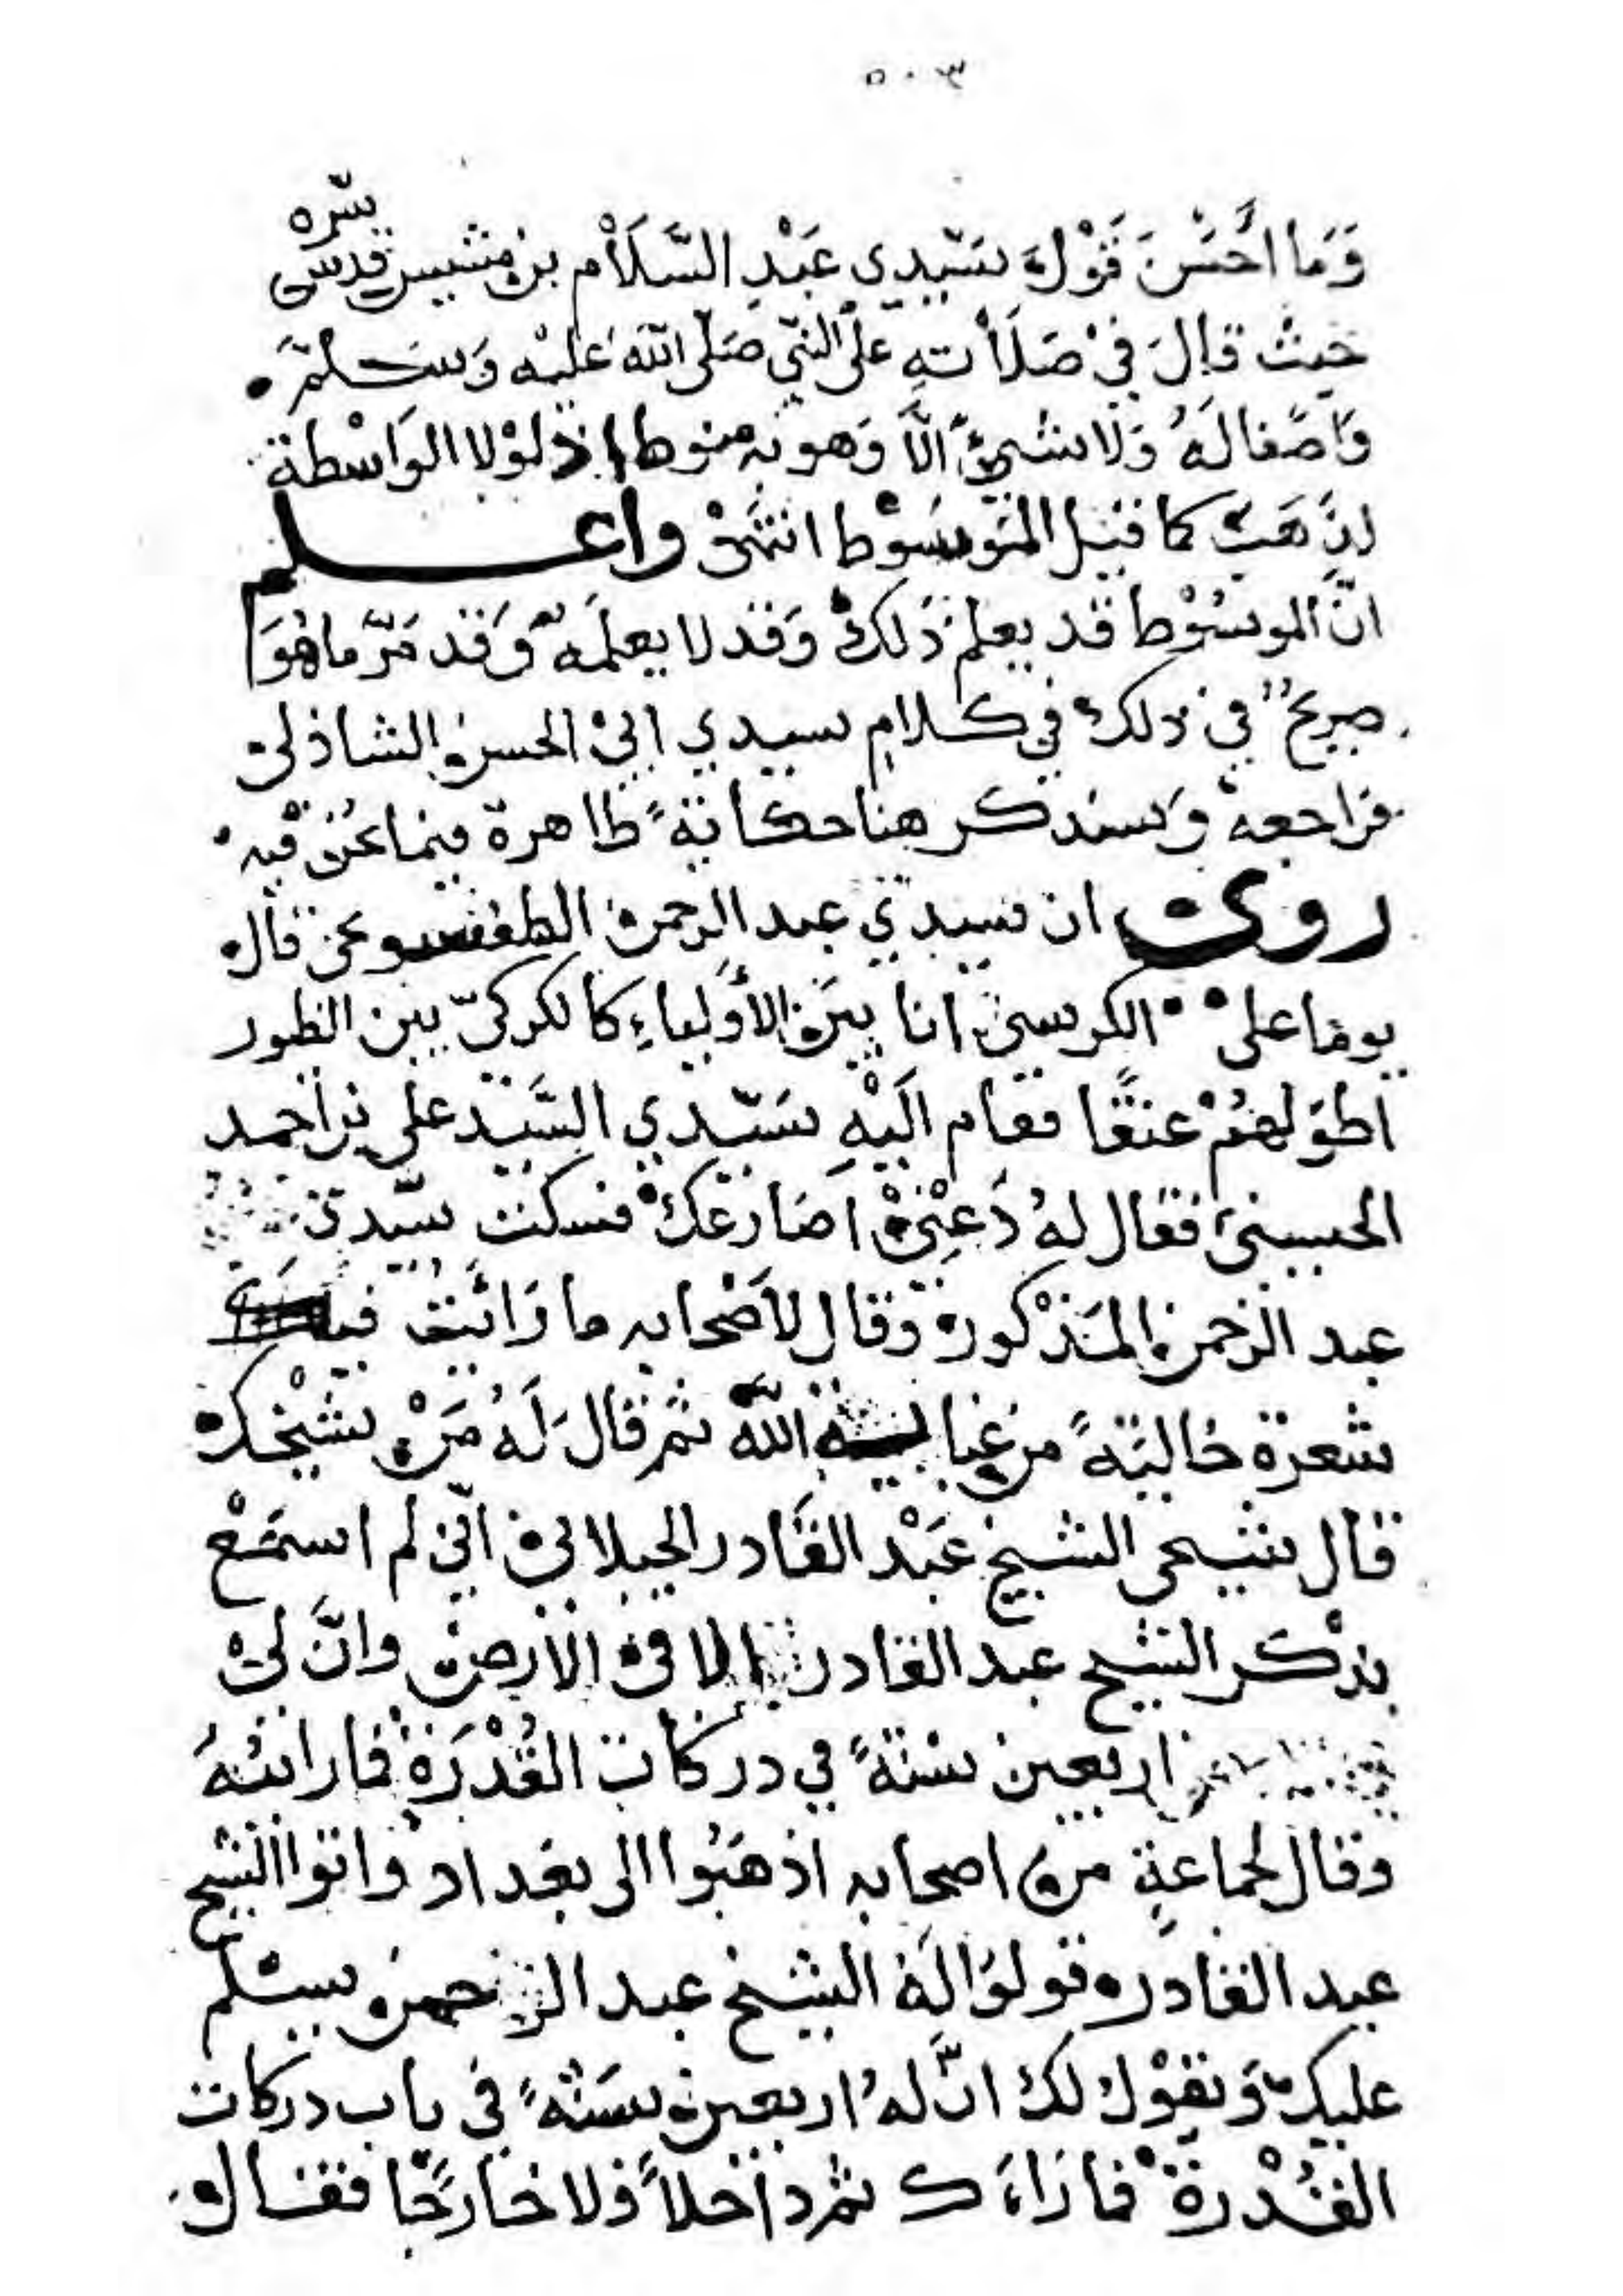 ٥٠٣
وَمَا احْسَنَ قَوْلَ سَيّدِي عَبْدِ السَّلَاْم بن مشيس قدس سّره
حَيثُ قالَ فِيْ صَلَاْتهِ علَى النّبي صَلّى اللّه عَليْه وَسَلمّ
وَاصفا لَهُ وَلَا شيئٌ الَّا وَهو بهِ منوط اذ لوْلا الوَاسْطة
لذَهَبَ كما قيْل المَوسُوْط انتَهىْ واعلم
انّ الموسُوْط قد يعلم ذَلكْ وَقد لا يعلمَهُ وَقد مَرّ ما هُوَ
صريحٌ في ذلك في كلامِ سيدي ابيْ الحسن الشاذلى
فراجعهْ وَسنذكر هنا حكايةً ظاهرة فيما نحُن فيْه
روى ان سيدي عبد الرحمن الطفسونجى قال
يوما على الكرسي انا بيَن الأَوْلياءِ كالكركيّ بين الطيور
اطوَلهُمْ عنقًا فقام الَيْهِ سَيّدي السَّيّد على بن احمد
الحسيني فقال لهُ دَعْنِيْ اصَارعَكْ فسكت سيّدي
عبد الرَحمن المَذْكور وَقال لأَصْحابه ما رَائيتُ فيه
شعرة خَاليَةً من عناية اللّه ثم قال لَهُ مَنْ شيْخك
قال شيخى الشيخ عَبْد القَادر الجيلاني انّي لم اسمَعْ
بذْكر الشيخ عبد القادر الا فى الارضْ وانَّ لىْ
اربعين سنةً في دركات القُدْرَة فما رائتهُ
وقال لجماعةٍ من اصحابه اذهَبُوا الى بغداد وَاتوا الشيخ
عبد القادر وقولوُا لَهُ الشيخ عبد الرحمن يسلم
عليك وَيقوْل لك انّ لهُ اربعين سَنةً في باب دركات
القُدْرة فما رَاءَك ثم داخلاً وَلا خارجًا فقال